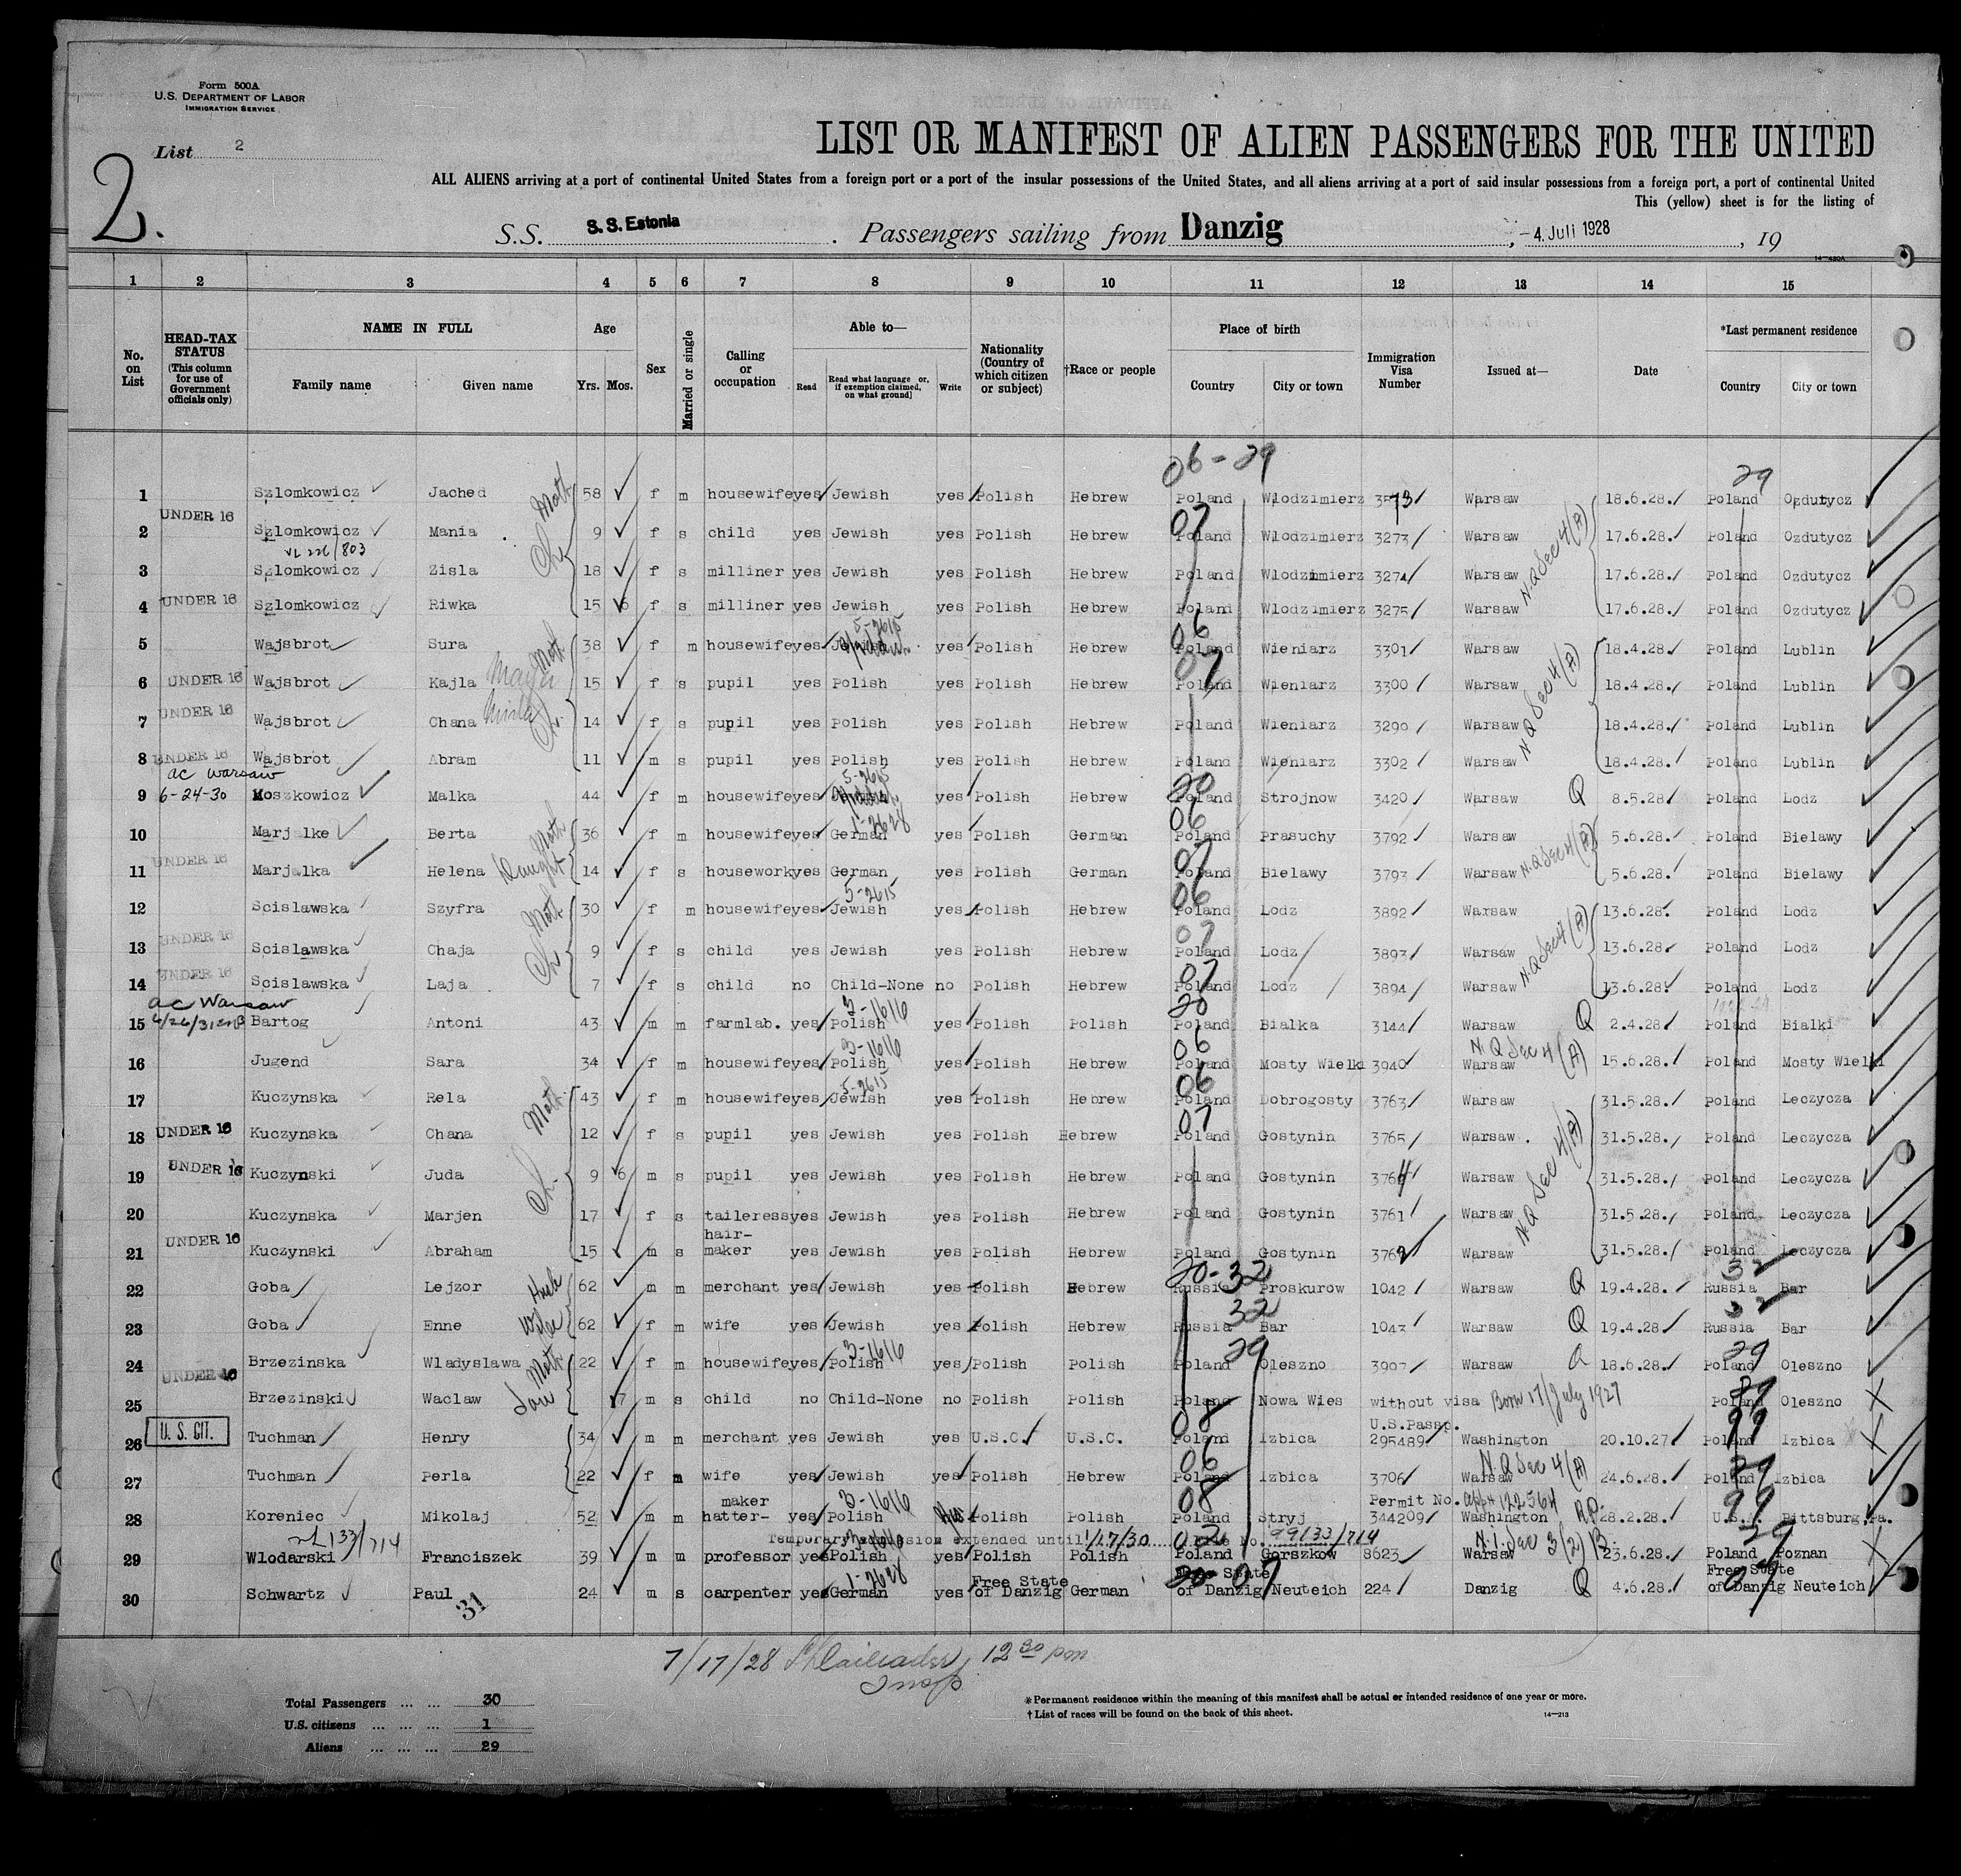 Form 500A
U.S. DEPARTMENT OF LABOR
IMMIGRATION SERVICE
List 2
2.
LIST OR MANIFEST OF ALIEN PASSENGERS FOR THE UNITED
ALL ALIENS arriving at a port of continental United States from a foreign port or a port of the insular possessions of the United States, and all aliens arriving at a port of said insular possessions from a foreign port, a port of continental United
This (yellow) sheet is for the listing of
S.S. S. S. Estonia. Passengers sailing from Danzig, -4. Juli 1928, 19
14—430A
1 2 3 4 5 6 7 8 9 10 11 12 13 14 15
No. on List
HEAD-TAX STATUS (This column for use of Government officials only)
NAME IN FULL Family name Given name
Age Yrs. Mos.
Sex
Married or single
Calling or occupation
Able to— Read Read what language or, if exemption claimed, on what ground] Write
Nationality (Country of which citizen or subject)
†Race or people
Place of birth Country City or town
Immigration Visa Number
Issued at—
Date
*Last permanent residence Country City or town
06-29 29
1 Szlomkowicz Jached 58 f m housewife yes Jewish yes Polish Hebrew Poland Wlodzimierz 3573 Warsaw 18.6.28. Poland Ozdutycz
2 UNDER 16 Szlomkowicz Mania 9 f s child yes Jewish yes Polish Hebrew 07 Poland Wlodzimierz 3273 Warsaw 17.6.28. Poland Ozdutycz
3 Szlomkowicz Zisla 18 f s milliner yes Jewish yes Polish Hebrew Poland Wlodzimierz 3274 Warsaw 17.6.28. Poland Ozdutycz
4 UNDER 16 Szlomkowicz Riwka 15 6 f s milliner yes Jewish yes Polish Hebrew Poland Wlodzimierz 3275 Warsaw 17.6.28. Poland Ozdutycz
5 Wajsbrot Sura 38 f m housewife yes Jewish yes Polish Hebrew 06 Poland Wieniarz 3301 Warsaw 18.4.28. Poland Lublin
6 UNDER 16 Wajsbrot Kajla 15 f s pupil yes Polish yes Polish Hebrew 07 Poland Wieniarz 3300 Warsaw 18.4.28. Poland Lublin
7 UNDER 16 Wajsbrot Chana 14 f s pupil yes Polish yes Polish Hebrew Poland Wieniarz 3290 Warsaw 18.4.28. Poland Lublin
8 UNDER 16 Wajsbrot Abram 11 m s pupil yes Polish yes Polish Hebrew Poland Wieniarz 3302 Warsaw 18.4.28. Poland Lublin
ac Warsaw
9 6-24-30 Moszkowicz Malka 44 f m housewife yes yes Polish Hebrew 20 Poland Strojnow 3420 Warsaw Q 8.5.28 Poland Lodz
10 Marjalke Berta 36 f m housewife yes German yes Polish German 06 Poland Prasuchy 3792 Warsaw 5.6.28. Poland Bielawy
11 UNDER 16 Marjalka Helena 14 f s housework yes German yes Polish German 07 Poland Bielawy 3793 Warsaw 5.6.28. Poland Bielawy
12 Scislawska Szyfra 30 f m housewife yes Jewish yes Polish Hebrew 06 Poland Lodz 3892 Warsaw 13.6.28. Poland Lodz
13 UNDER 16 Scislawska Chaja 9 f s child yes Jewish yes Polish Hebrew 07 Poland Lodz 3893 Warsaw 13.6.28. Poland Lodz
14 UNDER 16 Scislawska Laja 7 f s child no Child-None no Polish Hebrew 07 Poland Lodz 3894 Warsaw 13.6.28. Poland Lodz
ac Warsaw
15 Bartog Antoni 43 m m farmlab. yes Polish yes Polish Polish 20 Poland Bialka 3144 Warsaw Q 2.4.28 Poland Bialki
16 Jugend Sara 34 f m housewife yes Polish yes Polish Hebrew 06 Poland Mosty Wielki 3940 Warsaw 15.6.28. Poland Mosty Wielki
17 Kuczynska Rela 43 f m housewife yes Jewish yes Polish Hebrew 06 Poland Dobrogosty 3763 Warsaw 31.5.28. Poland Leczycza
18 UNDER 16 Kuczynska Chana 12 f s pupil yes Jewish yes Polish Hebrew 07 Poland Gostynin 3765 Warsaw. 31.5.28. Poland Leczycza
19 UNDER 16 Kuczynski Juda 9 6 m s pupil yes Jewish yes Polish Hebrew Poland Gostynin 3764 Warsaw 31.5.28. Poland Leczycza
20 Kuczynska Marjen 17 f s taileress yes Jewish yes Polish Hebrew Poland Gostynin 3761 Warsaw 31.5.28. Poland Leczycza
21 UNDER 16 Kuczynski Abraham 15 m s hair-maker yes Jewish yes Polish Hebrew Poland Gostynin 3762 Warsaw 31.5.28. Poland Leczycza
22 Goba Lejzor 62 m m merchant yes Jewish yes Polish Hebrew 20-32 Russia Proskurow 1042 Warsaw Q 19.4.28. Russia Bar
23 Goba Enne 62 f m wife yes Jewish yes Polish Hebrew 32 Russia Bar 1043 Warsaw Q 19.4.28 Russia Bar
24 Brzezinska Wladyslawa 22 f m housewife yes Polish yes Polish Polish 29 Poland Oleszno 3907 Warsaw Q 18.6.28. Poland Oleszno
25 UNDER 16 Brzezinski Waclaw 17 m s child no Child-None no Polish Polish Poland Nowa Wies without visa Born 17/July 1927 Poland Oleszno
26 U. S. CIT. Tuchman Henry 34 m m merchant yes Jewish yes U.S.C. U.S.C. 08 Poland Izbica U.S.Passp. 295489 Washington 20.10.27. Poland Izbica
27 Tuchman Perla 22 f m wife yes Jewish yes Polish Hebrew 06 Poland Izbica 3706 Warsaw 24.6.28. Poland Izbica
28 Koreniec Mikolaj 52 m m hatter-maker yes Polish Polish Polish 08 Poland Stryj Permit No. 344209 Washington 28.2.28. U.S.A. Pittsburg, Pa.
Temporary admission extended until 1/17/30 No. 99133/714
29 Wlodarski Franciszek 39 m m professor yes Polish yes Polish Polish Poland Gorszkow 8623 Warsaw 23.6.28. Poland Poznan
30 Schwartz Paul 24 m s carpenter yes German yes Free State of Danzig German Free State of Danzig Neuteich 224 Danzig Q 4.6.28. Free State of Danzig Neuteich
31
7/17/28 12 30 pm
Insp
Total Passengers ... ... 30
U.S. citizens ... ... ... 1
Aliens ... ... ... 29
* Permanent residence within the meaning of this manifest shall be actual or intended residence of one year or more.
† List of races will be found on the back of this sheet.
14—213